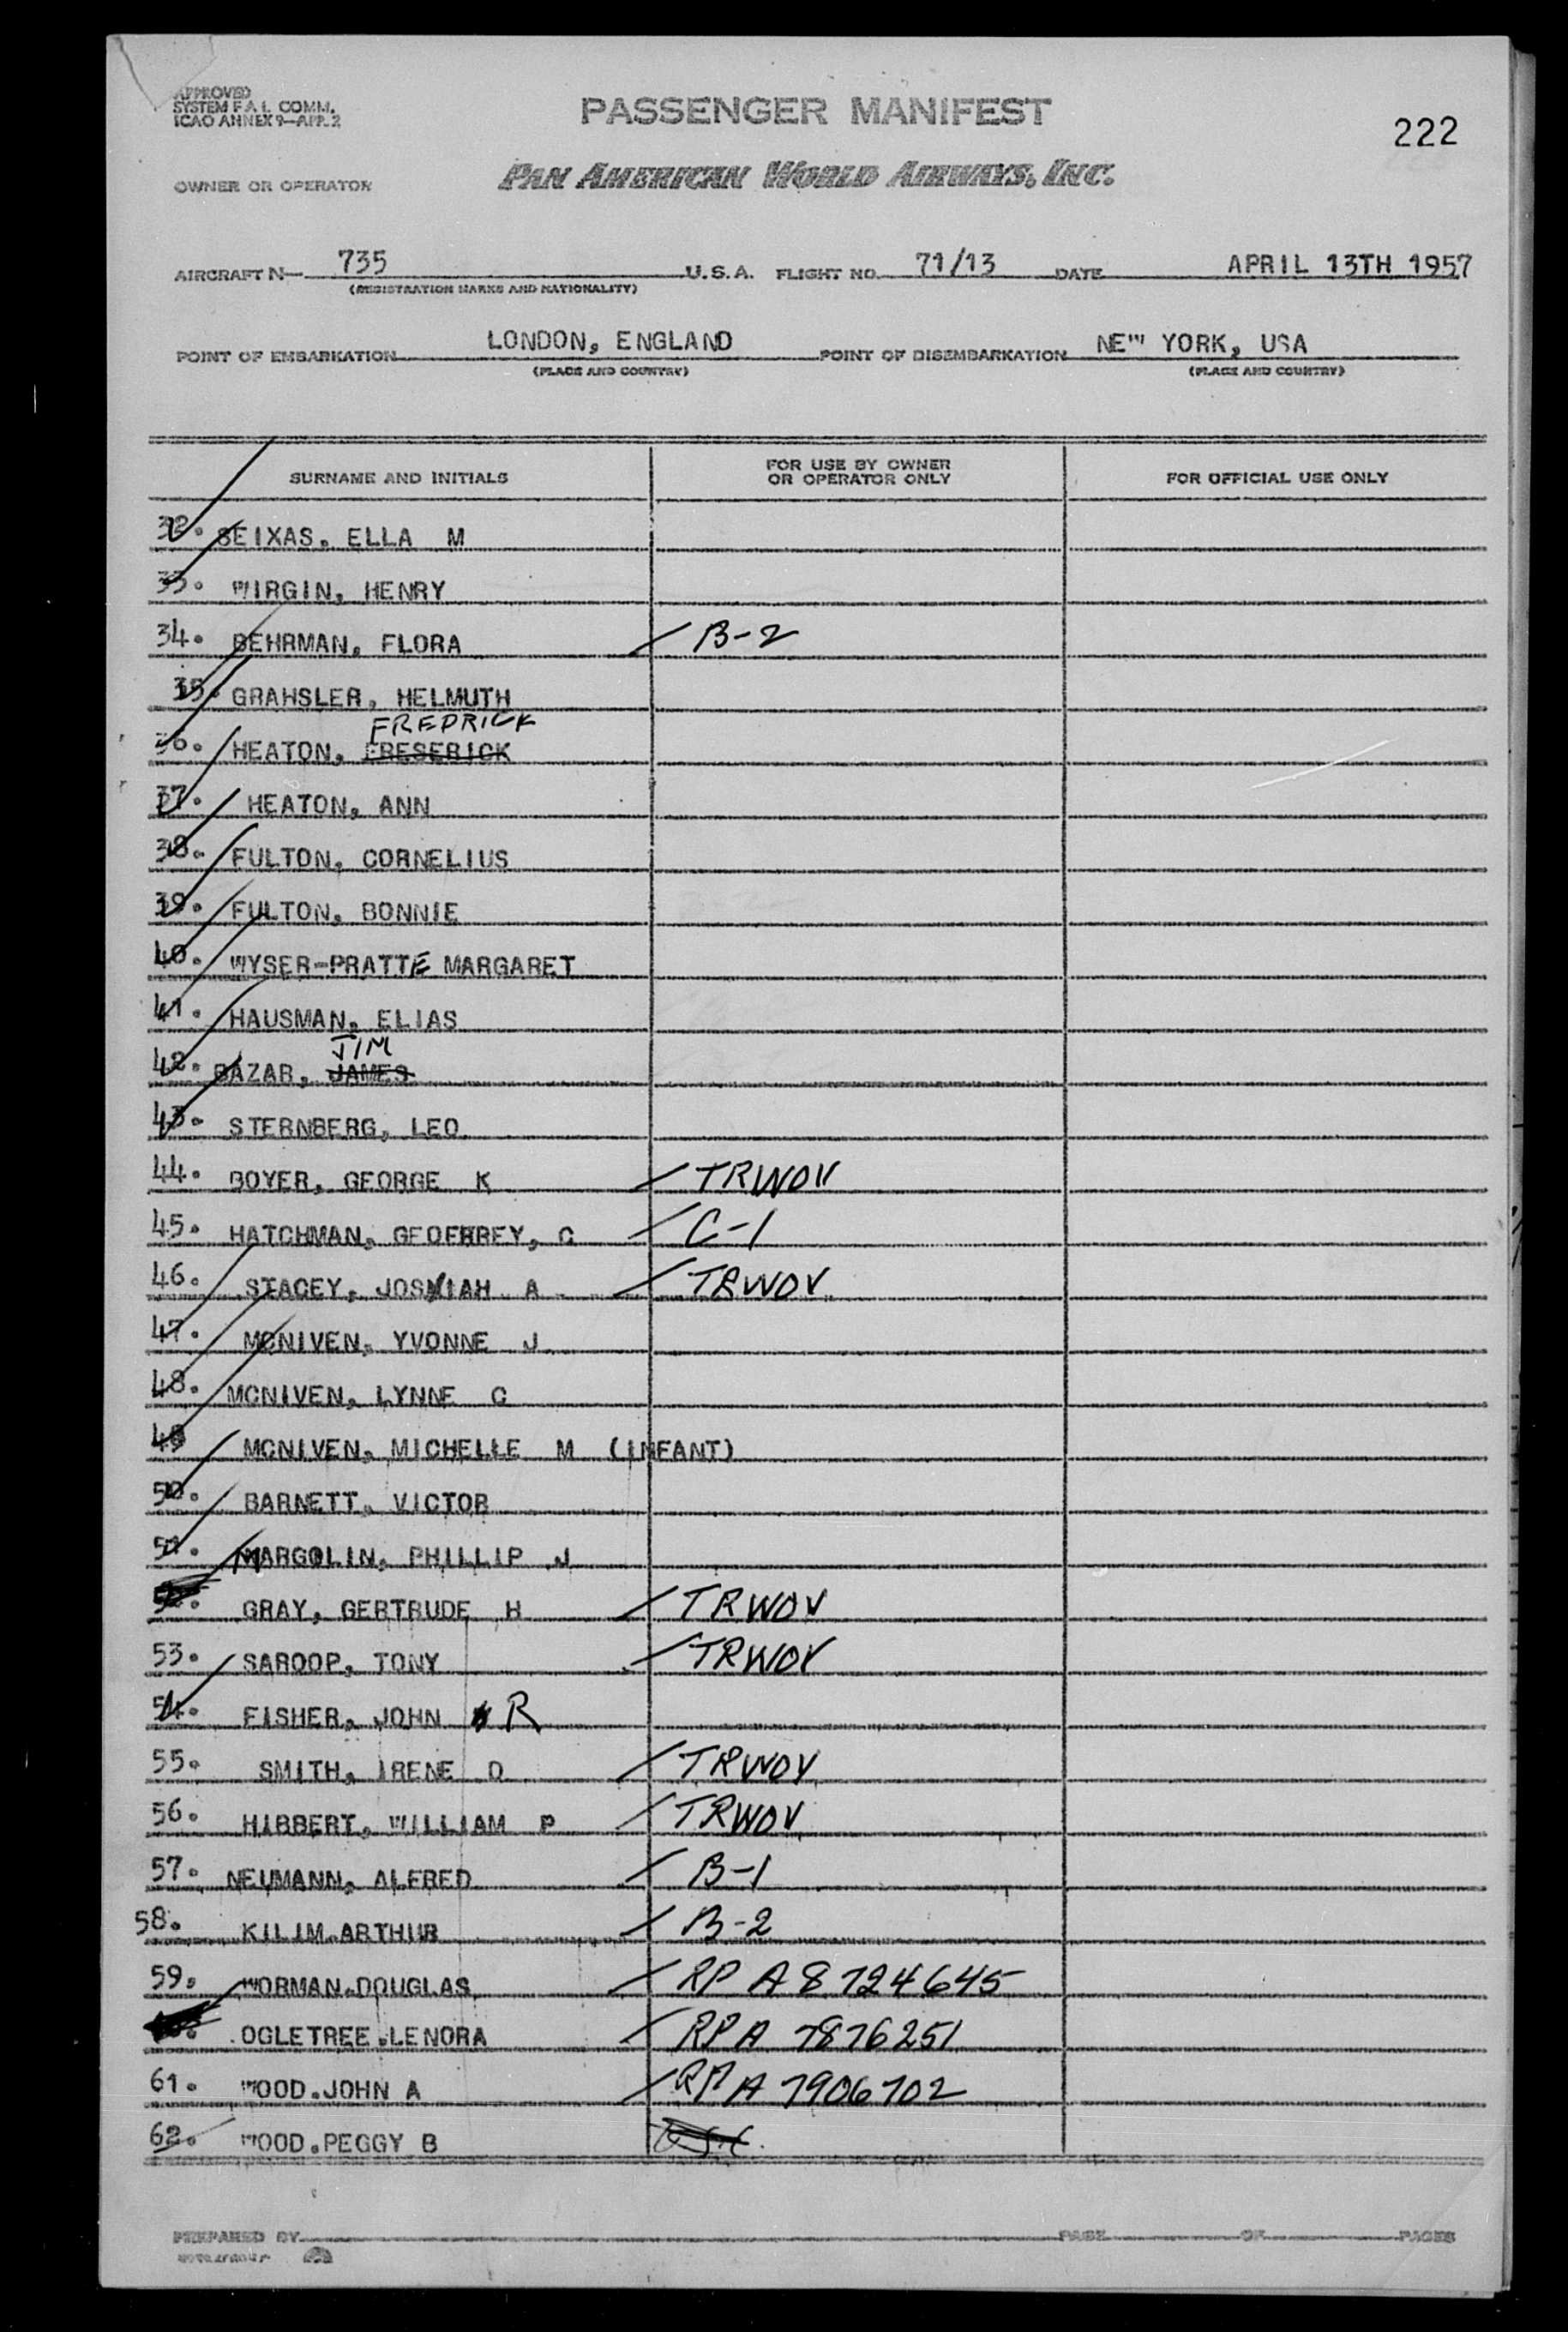 APPROVED
SYSTEM F A L COMM.
ICAO ANNEX 9—APP. 2
PASSENGER MANIFEST
222
OWNER OR OPERATOR
PAN AMERICAN WORLD AIRWAYS, INC.
AIRCRAFT N— 735 U.S.A. FLIGHT NO. 71/13 DATE APRIL 13TH 1957
(REGISTRATION MARKS AND NATIONALITY)
POINT OF EMBARKATION LONDON, ENGLAND POINT OF DISEMBARKATION NEW YORK, USA
(PLACE AND COUNTRY) (PLACE AND COUNTRY)
SURNAME AND INITIALS FOR USE BY OWNER OR OPERATOR ONLY FOR OFFICIAL USE ONLY
32. SEIXAS, ELLA M
33. WIRGIN, HENRY
34. BEHRMAN, FLORA B-2
35. GRAHSLER, HELMUTH
FREDRICK
36. HEATON, FRESERICK
37. HEATON, ANN
38. FULTON, CORNELIUS
39. FULTON, BONNIE
40. WYSER-PRATTE MARGARET
41. HAUSMAN, ELIAS
JIM
42. BAZAR, JAMES
43. STERNBERG, LEO
44. BOYER, GEORGE K TRWOV
45. HATCHMAN, GEOFFREY, C C-1
46. STACEY, JOSIAH A TRWOV
47. MCNIVEN, YVONNE J
48. MCNIVEN, LYNNE C
49 MCNIVEN, MICHELLE M (INFANT)
50. BARNETT, VICTOR
51. MARGOLIN, PHILLIP J
52. GRAY, GERTRUDE H TRWOV
53. SAROOP, TONY TRWOV
54. FISHER, JOHN R
55. SMITH, IRENE D TRWOV
56. HIBBERT, WILLIAM P TRWOV
57. NEUMANN, ALFRED B-1
58. KILIM.ARTHUR B-2
59. WORMAN.DOUGLAS RP A 8 724 645
OGLETREE.LENORA RP A 7876251
61. WOOD.JOHN A RP A 7906702
62. WOOD.PEGGY B
PREPARED BY PAGE OF PAGES